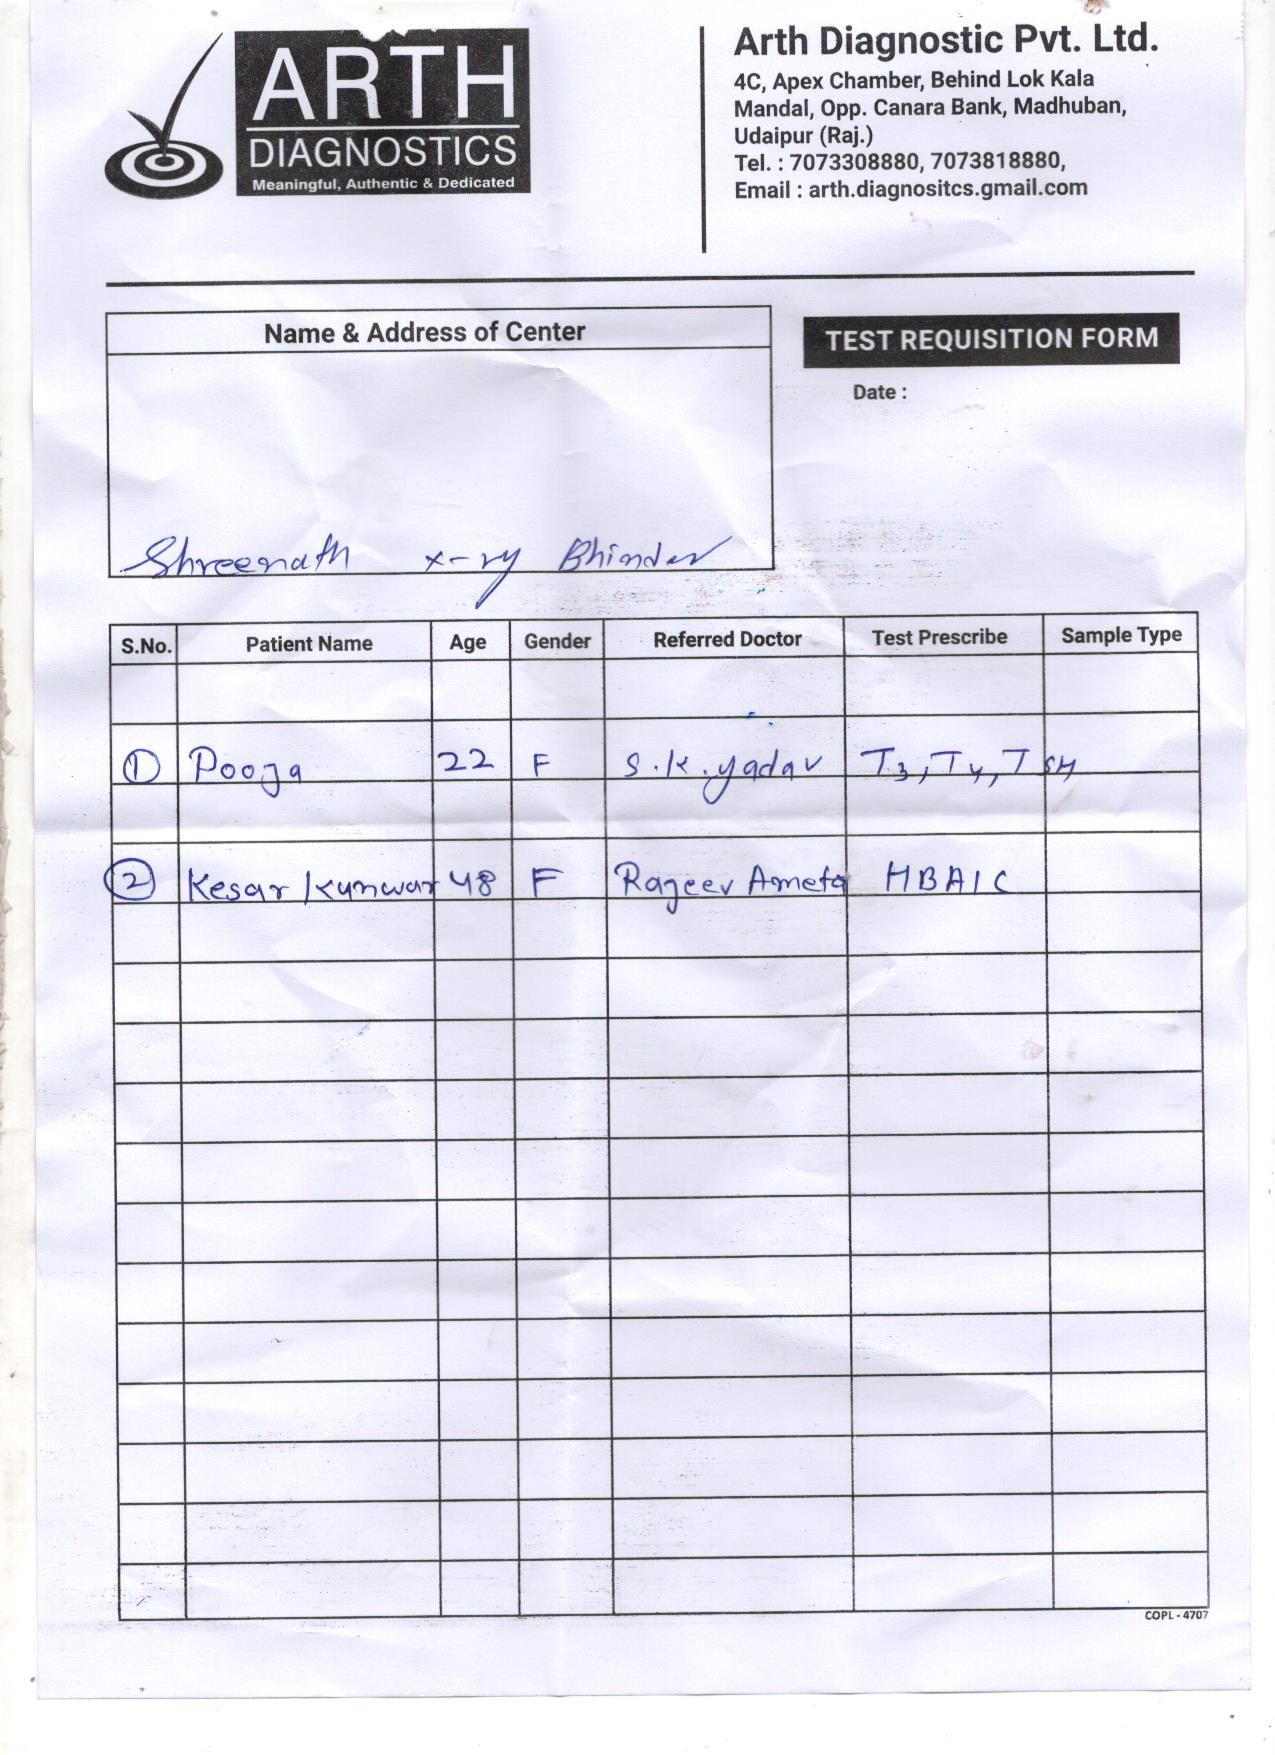 ARTH
DIAGNOSTICS
Meaningful, Authentic & Dedicated
Arth Diagnostic Pvt. Ltd.
4C, Apex Chamber, Behind Lok Kala
Mandal, Opp. Canara Bank, Madhuban,
Udaipur (Raj.)
Tel. : 7073308880, 7073818880,
Email : arth.diagnositcs.gmail.com
Name & Address of Center
TEST REQUISITION FORM
Date :
Shreenath x-ry Bhinder
S.No. Patient Name Age Gender Referred Doctor Test Prescribe Sample Type
1 Pooja 22 F S.K.yadav T3, T4, TSH
2 Kesar Kunwar 48 F Rajeev Ameta HBA1C
COPL - 4707